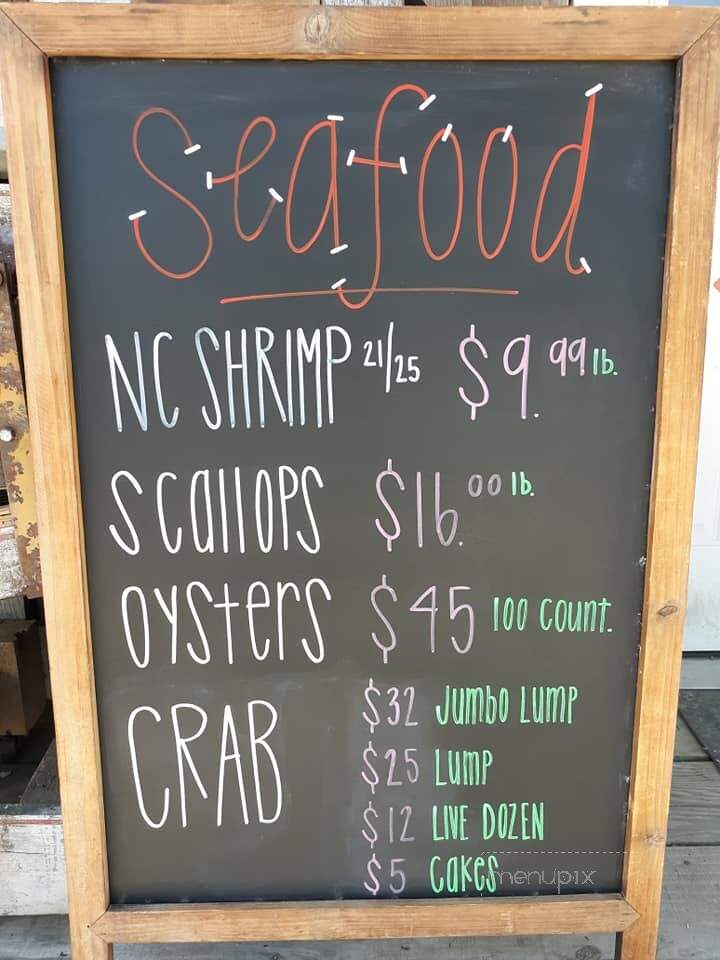 Seafood
NC SHRIMP 21/25 $9.99 lb.
Scallops $16.00 lb.
Oysters $45 100 count.
CRAB $32 Jumbo Lump
$25 Lump
$12 LIVE DOZEN
$5 Cakes
menupix